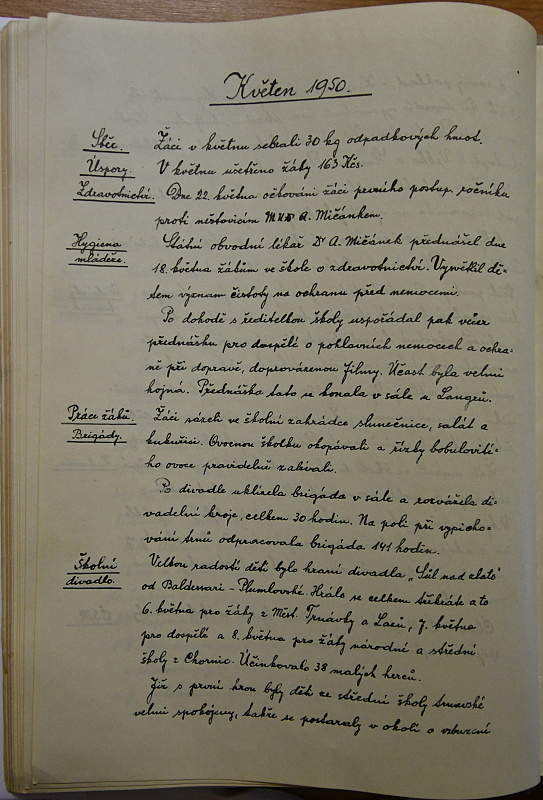 Květen 1950.
Sběr. Žáci v květnu sebrali 30 kg odpadkových hmot.
Úspory. V květnu ušetřeno žáky 163 Kčs.
Zdravotnictví. Dne 22. května očkováni žáci prvního postup. ročníku
proti neštovicím A. Mičánkem.
Hygiena mládeže. Státní obvodní lékař Dr A. Mičánek přednášel dne
18. května žákům ve škole o zdravotnictví. Vysvětlil dě-
tem význam čistoty na ochranu před nemocemi.
Po dohodě s ředitelkou školy uspořádal pak večer
přednášku pro dospělé o pohlavních nemocech a ochra-
ně při dopravě, doprovázenou filmy. Účast byla velmi
hojná. Přednáška tato se konala v sále u Langrů.
Práce žáků. Žáci sázeli ve školní zahrádce slunečnice, salát a
Brigády. kukuřici. Ovocnou školku okopávali a řízky bobulovité-
ho ovoce pravidelně zalévali.
Po divadle uklízela brigáda v sále a rozvážela di-
vadelní kroje, celkem 30 hodin. Na poli při vypicho-
vání trnů odpracovala brigáda 141 hodin.
Školní divadlo. Velkou radostí dětí bylo hraní divadla „Sůl nad zlato"
od Baldessari - Plumlovské. Hrálo se celkem třikráte a to
6. května pro žáky z Měst. Trnávky a Lázů, 7. května
pro dospělé a 8. května pro žáky národní a střední
školy z Chornic. Účinkovalo 38 malých herců.
Již s první hrou byly děti ze střední školy trnavské
velmi spokojeny, takže se postaraly v okolí o vzbuzení